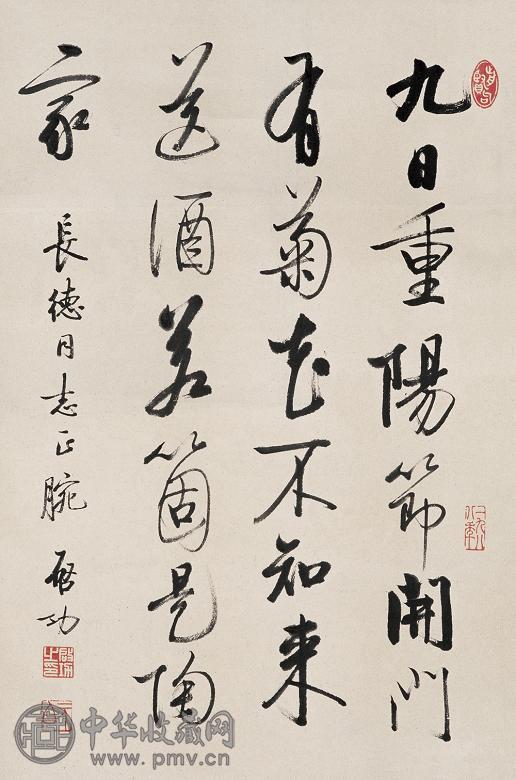 九日重陽節開門
有菊花不知来
送酒若箇是陶
家
長德同志正腕 啓功
中华收藏网
www.pmv.cn